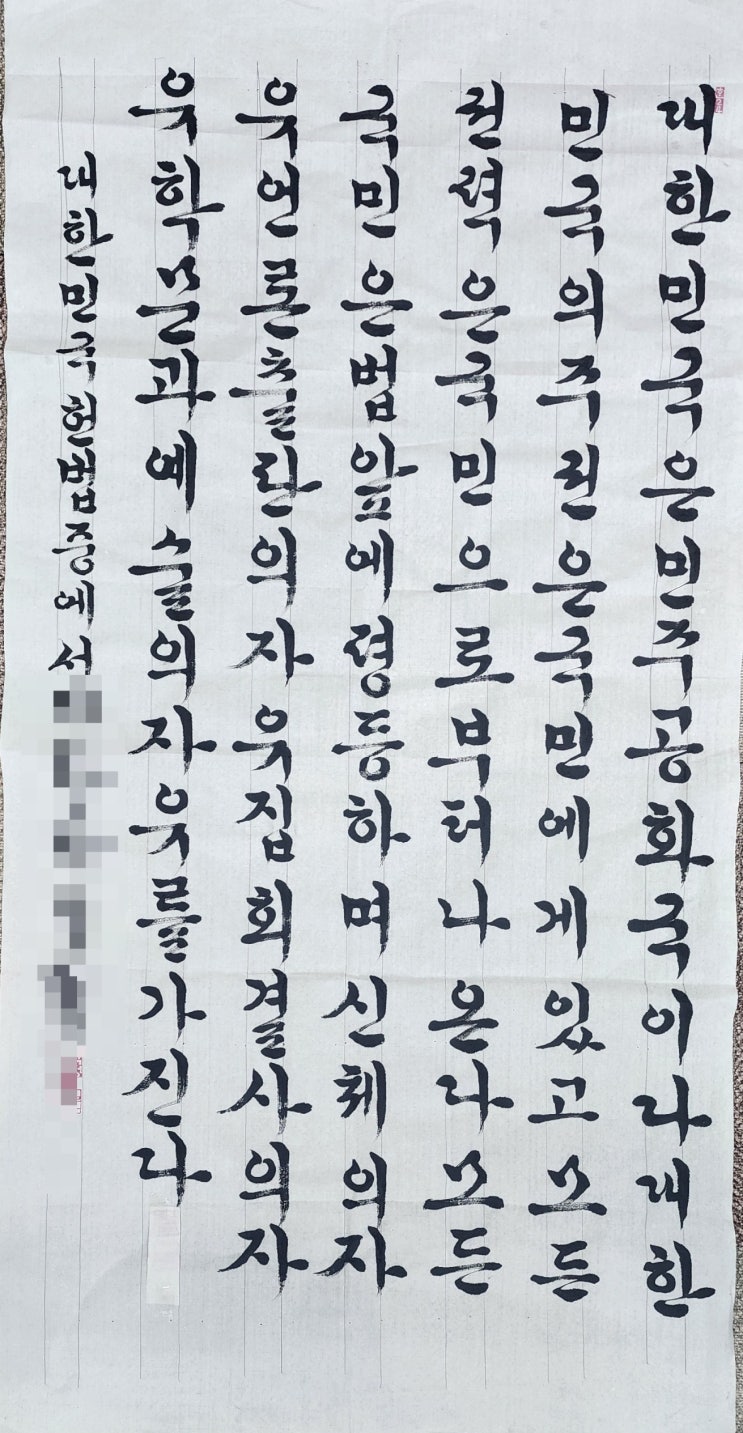 대한민국은민주공화국이다대한
민국의주권은국민에게있고모든
권력은국민으로부터나온다모든
국민은법앞에평등하며신체의자
유언론출판의자유집회결사의자
유학문과예술의자유를가진다
대한민국헌법중에서